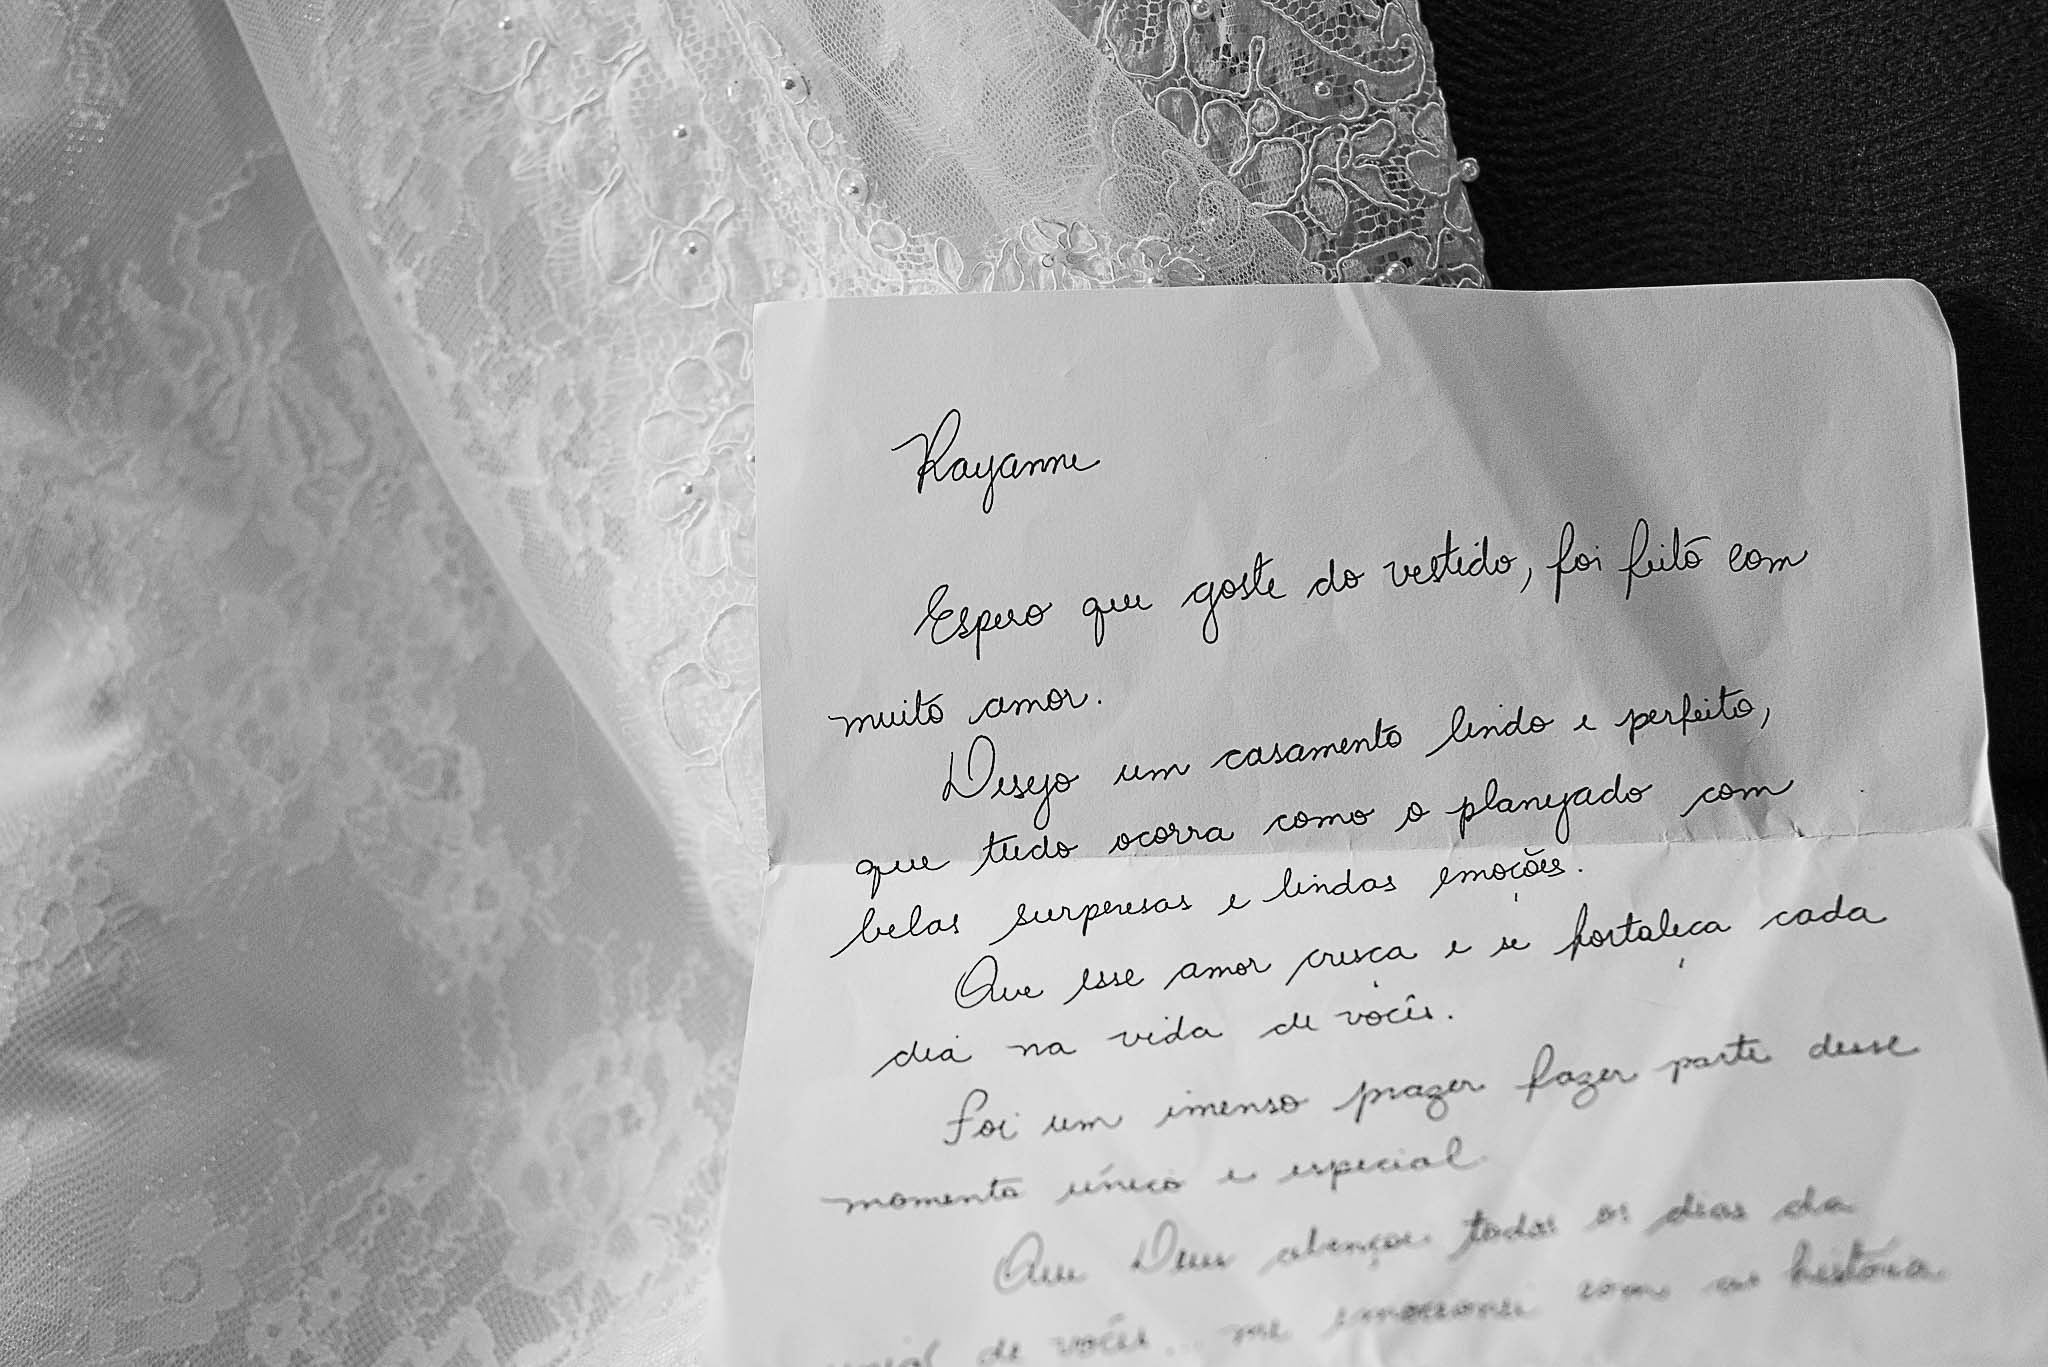 Rayanne
Espero que goste do vestido, foi feito com
muito amor.
Desejo um casamento lindo e perfeito,
que tudo ocorra como o planejado com
belas surpresas e lindas emoções.
Que esse amor cresça e se fortaleça cada
dia na vida de vocês.
Foi um imenso prazer fazer parte desse
momento único e especial
Que Deus abençoe todos os dias da
de vocês. me emocionei com a história